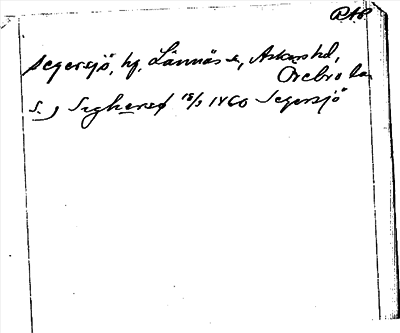 RAP
Segersjö, hg, Lännäs sn, Askers hd,
Örebro län
S. Seghersø 15/3 1460 Segersjö